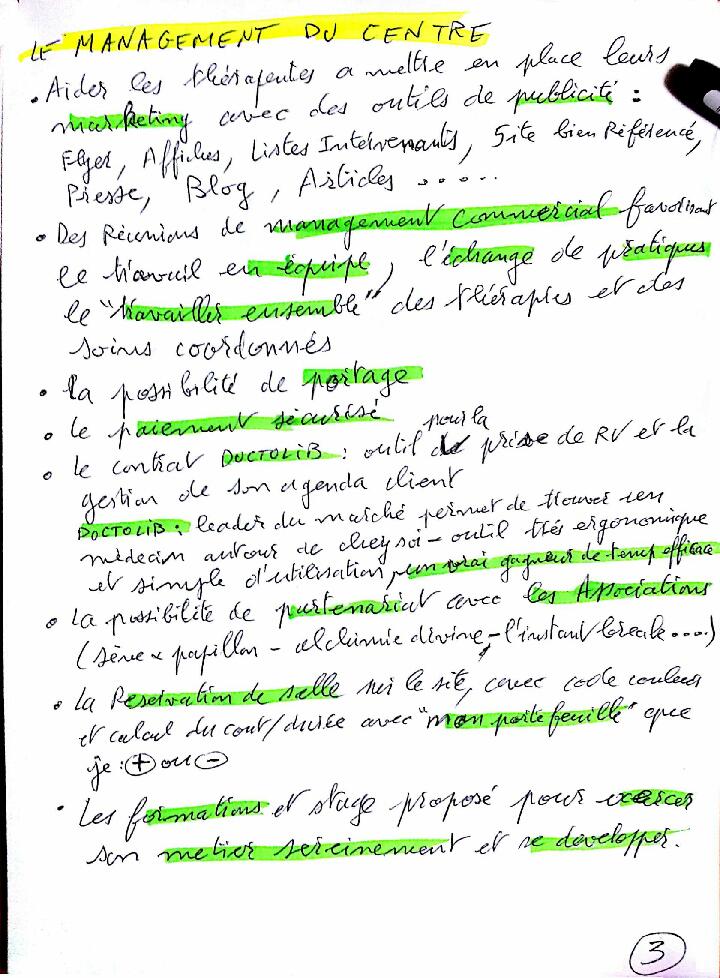 LE MANAGEMENT DU CENTRE
• Aider les thérapeutes a mettre en place leurs
marketing avec des outils de publicité :
Flyer, Affiches, Listes Intervenants, Site bien Référencé,
Presse, Blog, Articles .....
• Des Réunions de management commercial favorisant
le travail en équipe, l'échange de pratiques
le "travailler ensemble" des thérapies et des
soins coordonnés
• la possibilité de portage
• le paiement sécurisé
pour la
• le contrat DOCTOLIB : outil de prise de RV et la
gestion de son agenda client
DOCTOLIB : leader du marché permet de trouver un
médecin autour de chez soi - outil très ergonomique
et simple d'utilisation, un vrai gagneur de temp efficace
• la possibilité de partenariat avec les Associations
(papillon - alchimie divine - l'instant ....)
• la Reservation de salle sur le site, avec code couleur
et calcul du cout/durée avec "mon portefeuille" que
je : + ou -
• Les formations et stage proposé pour exercer
son metier sereinement et se developper.
3